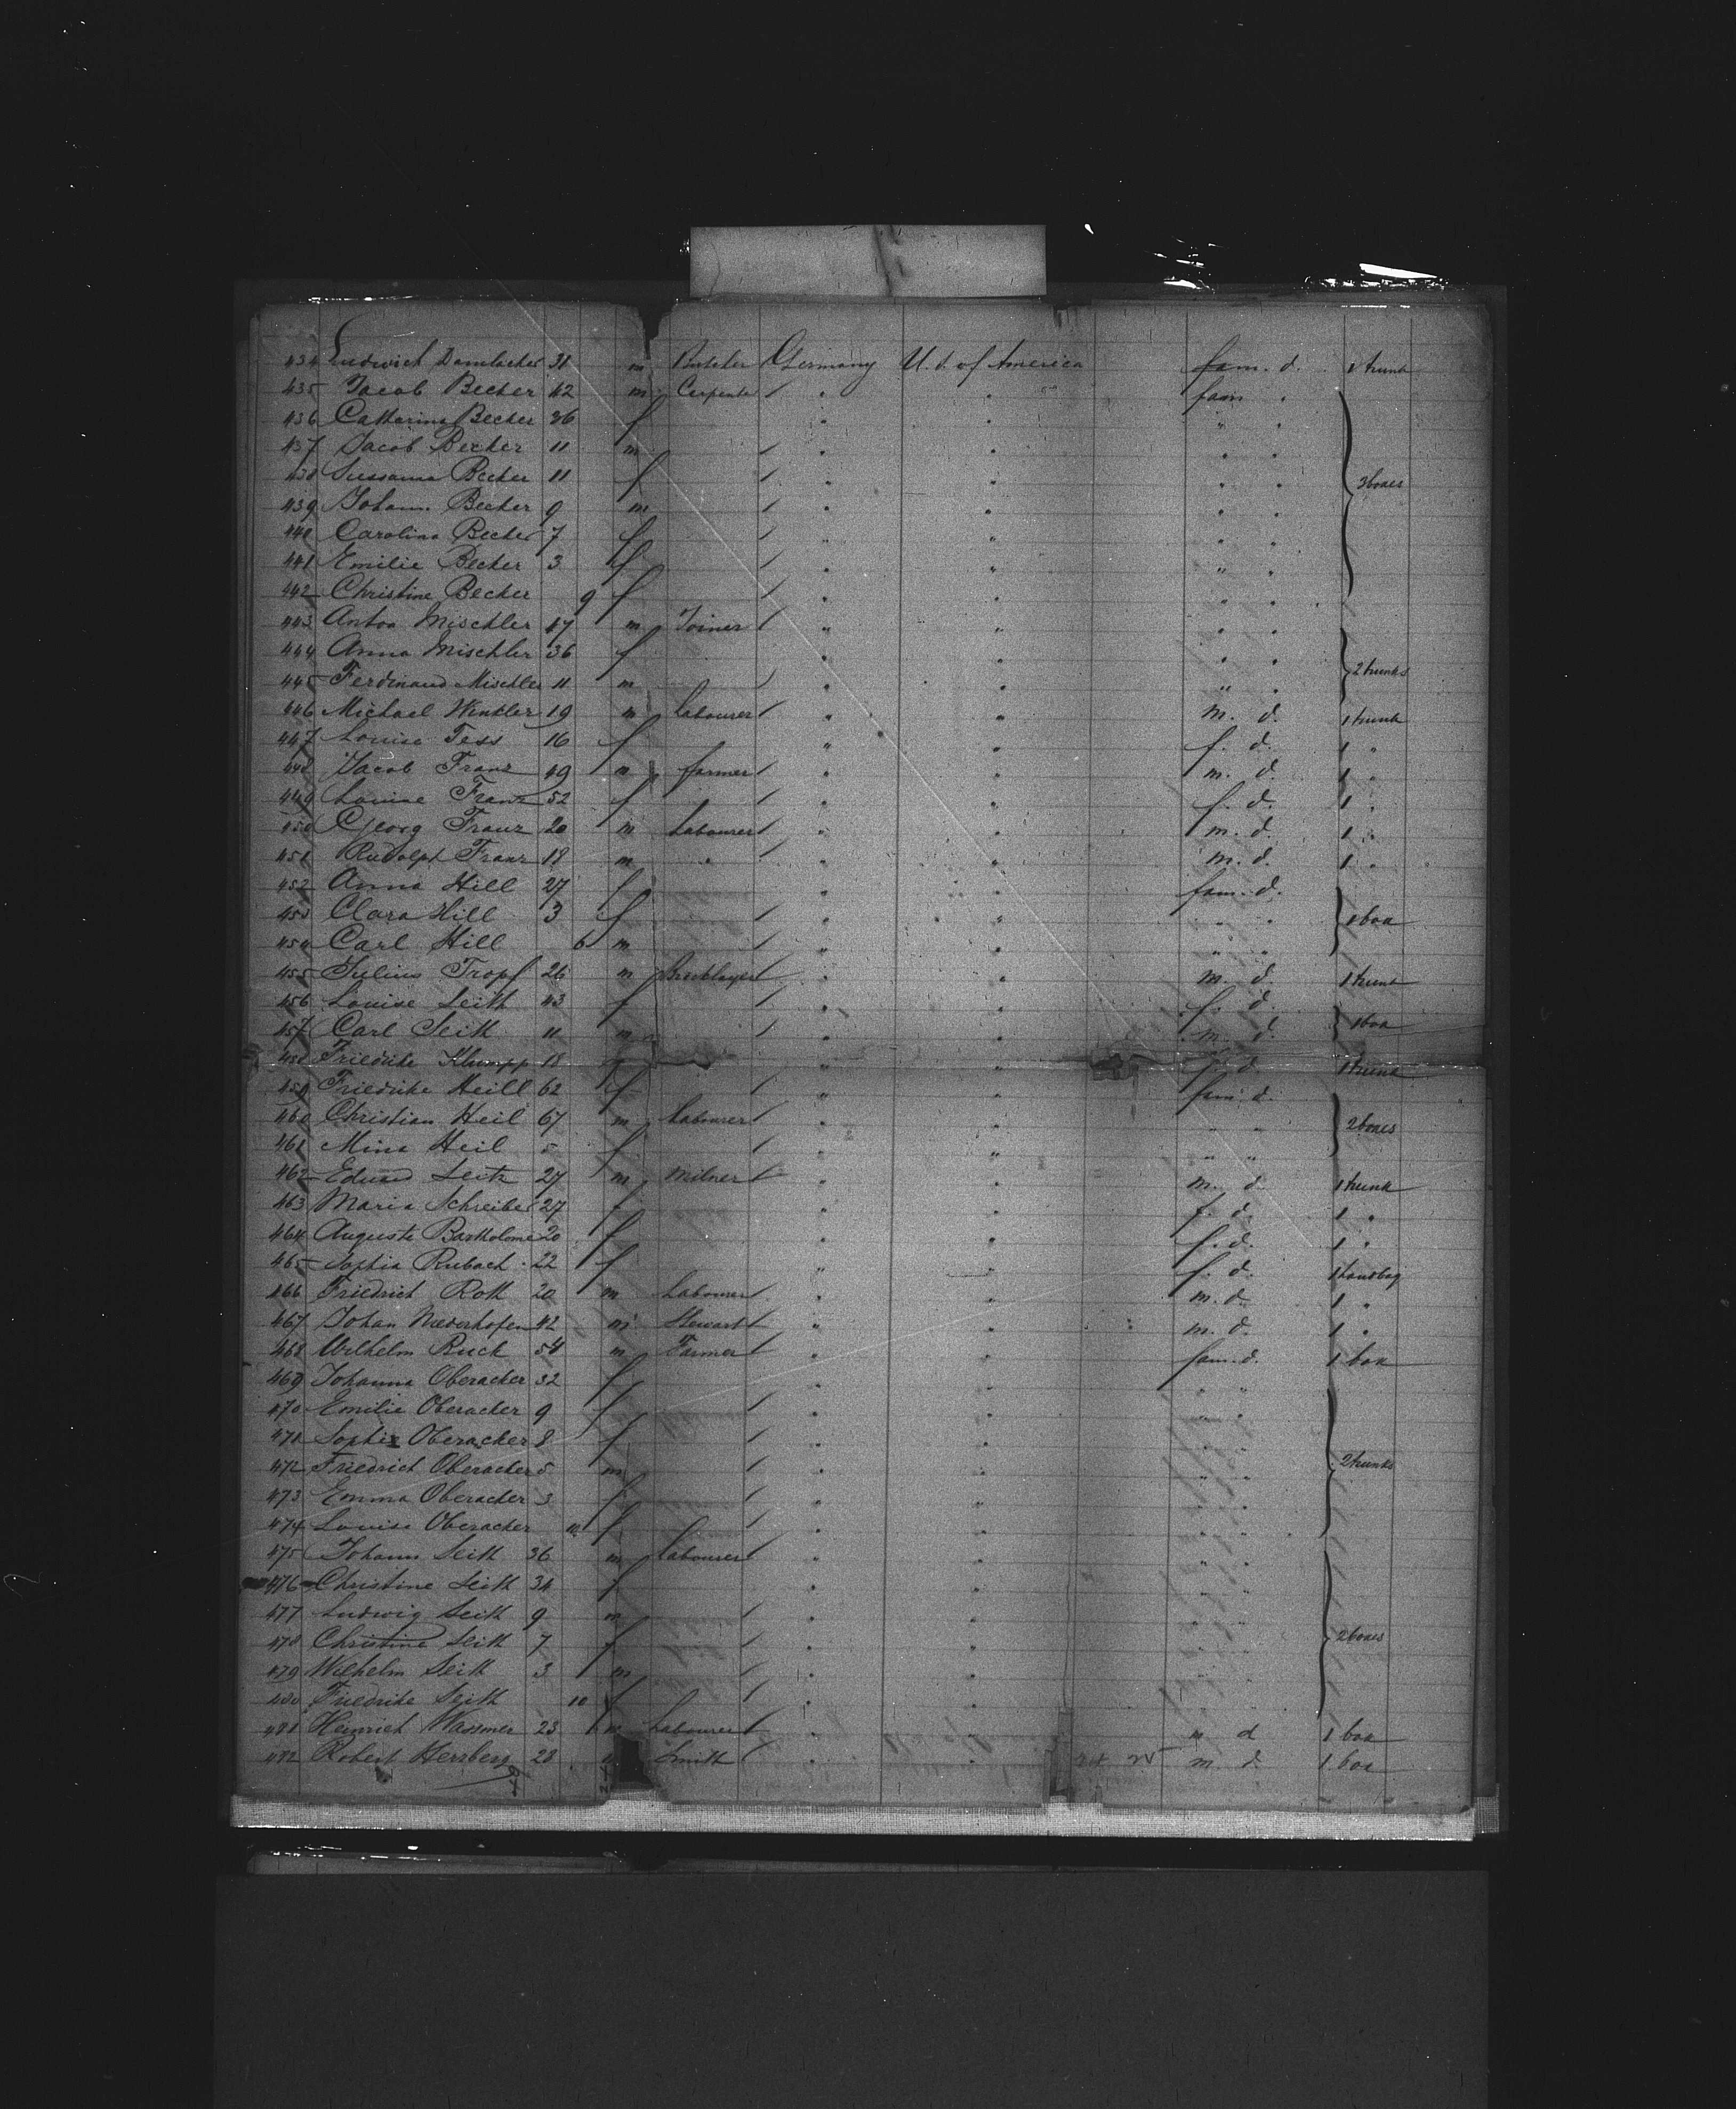 434 Ludwich Dambacher 31 m Butcher Germany U. S. of America fam. d. 1 trunk
435 Jacob Becker 42 m Carpenter " " fam "
436 Catharina Becker 36 f " " " "
437 Jacob Becker 11 m " " " "
438 Sussanna Becker 11 f " " " " 3 boxes
439 Johann Becker 9 m " " " "
440 Carolina Becker 7 f " " " "
441 Emilie Becker 3 f " " " "
442 Christine Becker 9 f " " " "
443 Anton Mischler 47 m Joiner " " " "
444 Anna Mischler 36 f " " " " 2 trunks
445 Ferdinand Mischler 11 m " " " "
446 Michael Winkler 19 m Labourer " " m. d. 1 trunk
447 Louise Tess 16 f " " f. d. 1 "
448 Jacob Franz 49 m farmer " " m. d. 1 "
449 Louise Franz 52 f " " f. d. 1 "
450 Georg Franz 20 m Labourer " " m. d. 1 "
451 Rudolph Franz 18 m " " " m. d. 1 "
452 Anna Hill 27 f " " fam. d.
453 Clara Hill 3 f " " " " 1 box
454 Carl Hill 6 m " " " "
455 Julius Tropf 26 m Bricklayer " " m. d. 1 trunk
456 Louise Seith 43 f " " f. d.
457 Carl Seith 11 m " " m. d. 1 box
458 Friedrike Klumpp 18 " " f. d. 1 trunk
459 Friedrike Heill 62 f " " fam. d.
460 Christian Heil 67 m Labourer " " " " 2 boxes
461 Mina Heil 5 f " " " "
462 Eduard Seitz 27 m Milner " " m. d. 1 trunk
463 Maria Schreiber 27 f " " f. d. 1 "
464 Auguste Bartholome 20 f " " f. d. 1 "
465 Sophia Rubach 22 f " " f. d. 1 handbag
466 Friedrich Roth 20 m Labourer " " m. d. 1 "
467 Johan Niederhofen 42 m Stewart " " m. d. 1 "
468 Wilhelm Ruck 54 m Farmer " " fam. d. 1 box
469 Johanna Oberacker 32 f " " " "
470 Emilie Oberacker 9 f " " " "
471 Sophie Oberacker 8 f " " " "
472 Friedrich Oberacker 5 m " " " " 2 trunks
473 Emma Oberacker 3 f " " " "
474 Louise Oberacker f " " " "
475 Johann Seith 36 m Labourer " " " "
476 Christine Seith 34 f " " " "
477 Ludwig Seith 9 m " " " "
478 Christine Seith 7 f " " " " 2 boxes
479 Wilhelm Seith 3 m " " "
480 Friedrike Seith 10 f " " "
481 Heinrich Wassmer 23 m Labourer " " m d 1 box
482 Robert Herrberg 28 Smith " " m. d. 1 box